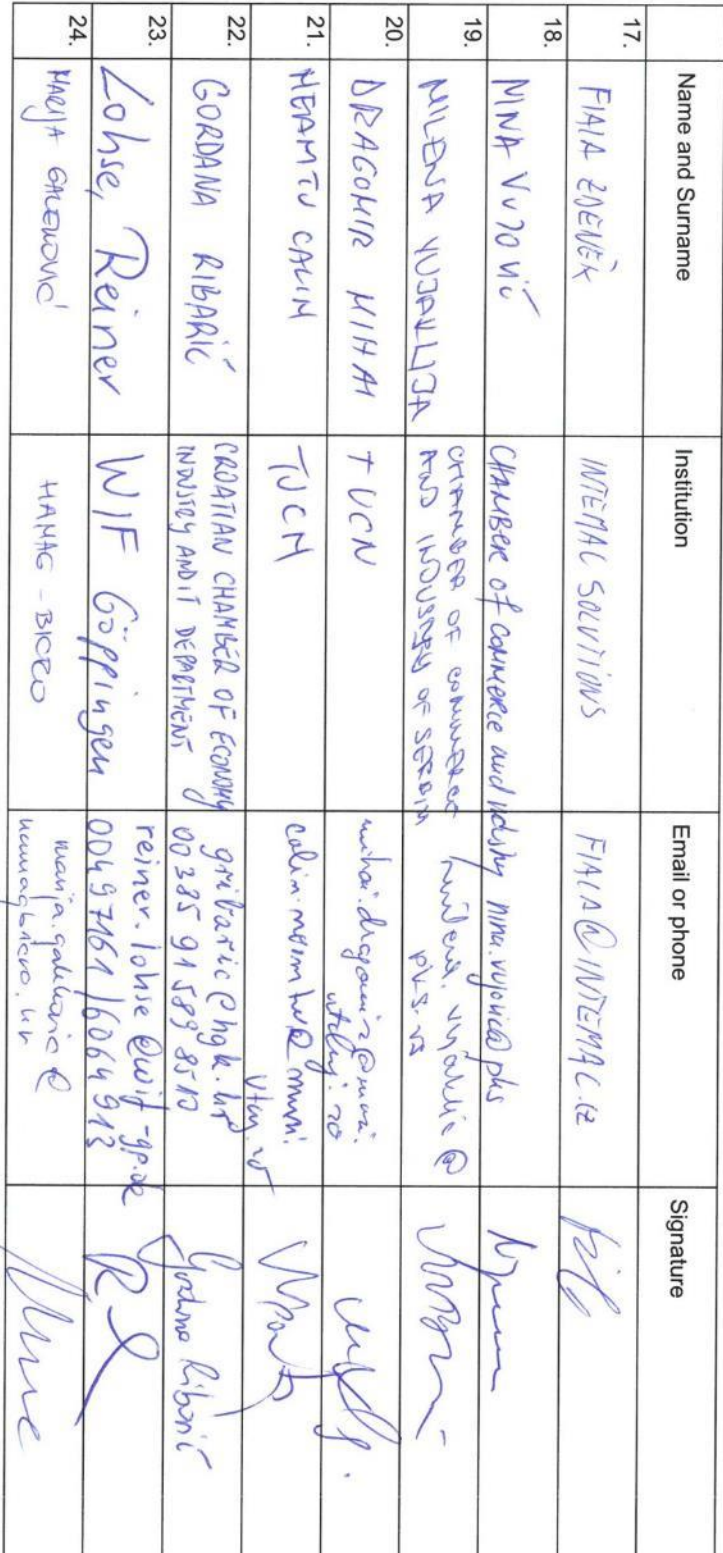 Name and Surname Institution Email or phone Signature
17. FIALA ZDENĚK INTEMAC SOLUTIONS FIALA@INTEMAC.CZ
18. NINA VUJOVIĆ CHAMBER of commerce and industry nina.vujovic@pks
19. MILENA VUJAKLIJA CHAMBER OF COMMERCE
AND INDUSTRY OF SERBIA
pks.rs
20. DRAGOMIR MIHAI TUCN mihai.dragomir@muri.
utcluj.ro
21. NEAMTU CALIN TUCN calin.neamtu@muri.
utcluj.ro
22. GORDANA RIBARIĆ CROATIAN CHAMBER OF ECONOMY gribaric@hgk.hr
INDUSTRY AND IT DEPARTMENT 00385 91 589 8510 Gordana Ribarić
23. Lohse, Reiner WIF Göppingen reiner.lohse@wif-gp.de
0049 7161 / 6064 913
24. MARIJA GALENOVIĆ HAMAG-BICRO marija.galenovic@
hamagbicro.hr